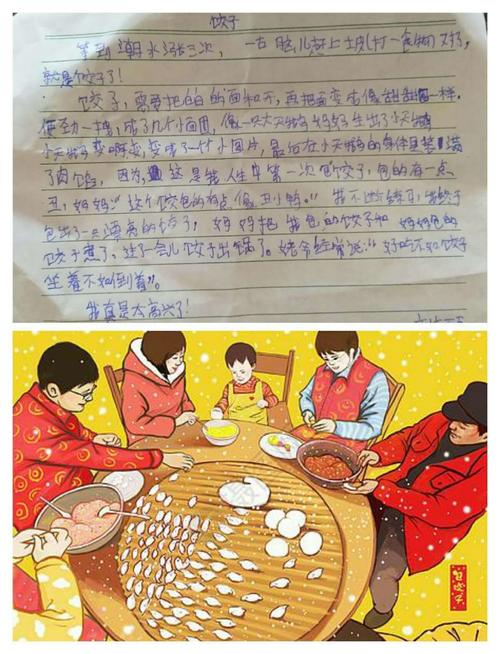 饺子
等到潮水涨三次,一古脑儿赶上坡(打一食物)对了,
就是饺子了!
饺子,需要把白白的面和开,再把面变成像甜甜圈一样,
使劲一拽,成了几个小面团,像一只大天鹅妈妈生出了小天鹅
小天鹅变啊变,变成了一个小圆片,最后在小天鹅的身体里装满
了肉馅,因为,这是我人生中第一次包饺子,包的有一点
丑,妈妈:“这个饺包的有点像丑小鸭。”我不断练习,我终于
包出了一只漂亮的饺子,妈妈把我包的饺子和妈妈包的
饺子煮了,过了一会儿饺子出锅了。姥爷经常说:“好吃不如饺子
坐着不如倒着”。
我真是太高兴了!
包饺子